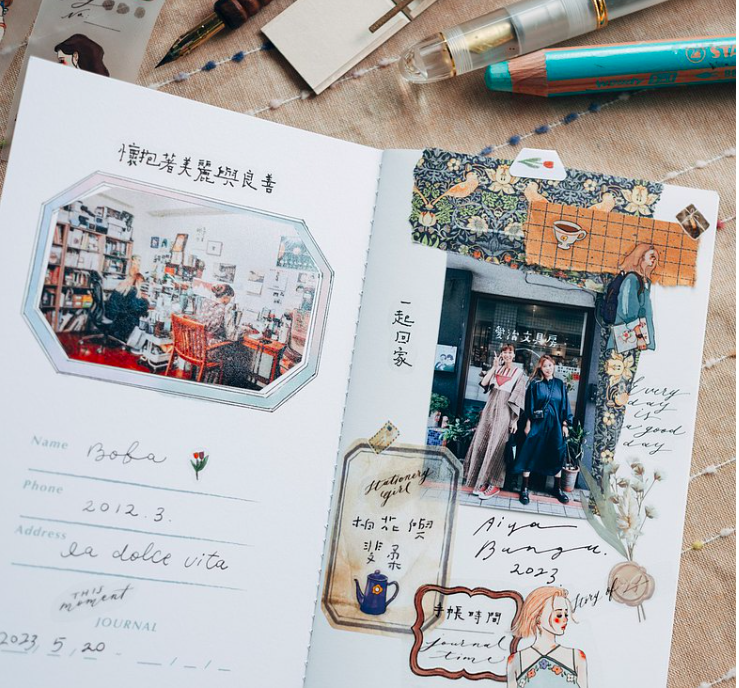 懷抱著美麗與良善
Name Boba
Phone 2012.3.
Address la dolce vita
THIS
moment
JOURNAL
2023, 5, 20
一起回家
文具屋
Every
day
is
a good
day
Stationery
girl
Aiya
2023
Story of
手帳時間
journal
time
STA